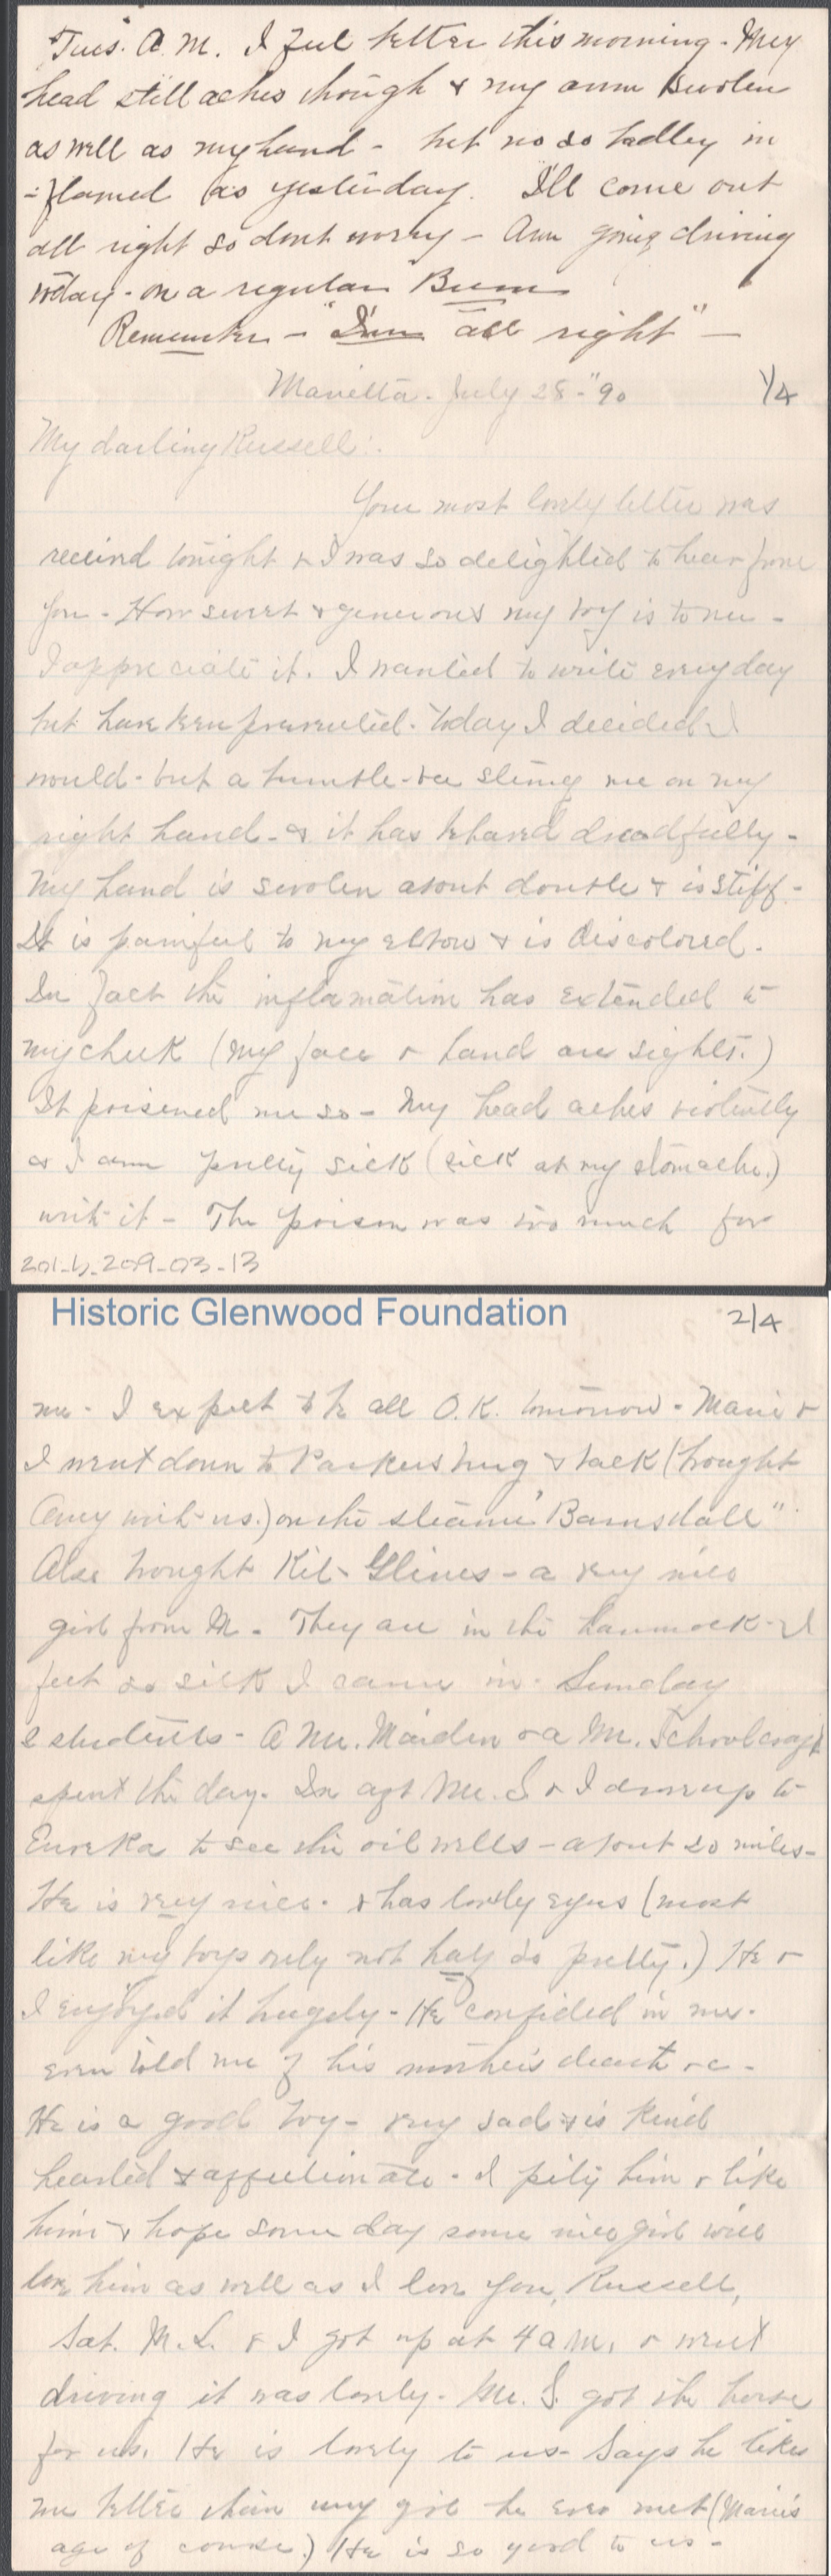 Tues. A.M. I feel better this morning - My
head still aches though & my arm swolen
as well as my hand - but no so badley in
-flamed as yesterday. I'll come out
all right so dont worry - Am going driving
today - on a regular Bum
Remember - "I'm all right" -
Marietta. July 28 - "90 1/4
My darling Russell:
Your most lovely letter was
received tonight & I was so delighted to hear from
you - How sweet & generous my boy is to me -
I appreciate it. I wanted to write every day
but have been prevented. Today I decided I
would - but a bumble-bee stung me on my
right hand - & it has behaved dreadfully -
My hand is swolen about double & is stiff -
It is painful to my elbow & is discolored.
In fact the inflamation has extended to
my cheek (my face & hand are sights.)
It poisened me so - My head aches violently
& I am pretty sick (sick at my stomache.)
with it - The poison was too much for
201-L-209-03-13
Historic Glenwood Foundation 2/4
me - I expect to be all O.K. tomorrow. Marie &
I went down to Parkersburg & back (brought
with us.) on the steamer "Barnsdall"
Also brought Kit Glines - a very nice
girl from M. They are in the hammock - I
felt so sick I came in. Sunday
2 students - A Mr. Maiden & a Mr. Schoolcraft
spent the day. In aft Mr. S & I drove up to
Eureka to see the oil wells - about 20 miles -
He is very nice. & has lovely eyes (most
like my boys only not half so pretty.) He &
I enjoyed it hugely - He confided in me.
even told me of his mother's death &c -
He is a good boy - very sad & is kind
hearted & affectionate. I pity him & like
him & hope some day some nice girl will
love him as well as I love you, Russell,
Sat. M.L. & I got up at 4 a.m. & went
driving it was lovely. Mr. S. got the horse
for us. He is lovely to us - Says he likes
me better than any girl he ever met (Marie's
age of course.) He is so good to us -